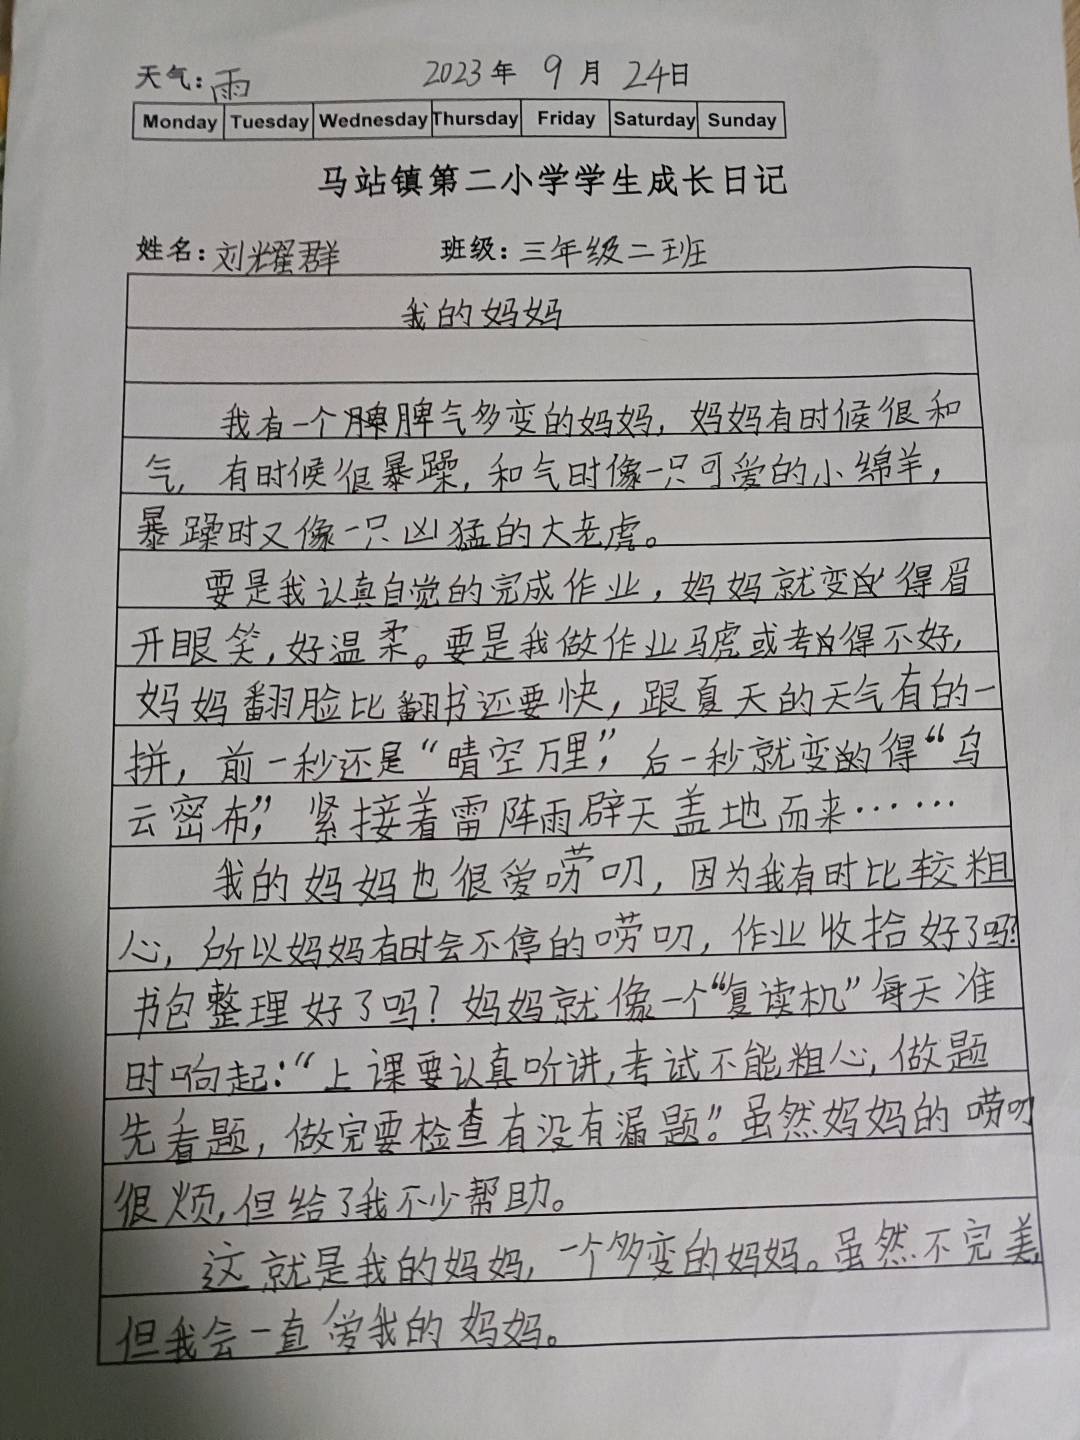 天气：雨 2023年 9月 24日
Monday Tuesday Wednesday Thursday Friday Saturday Sunday
马站镇第二小学学生成长日记
姓名：刘耀群 班级：三年级二班
我的妈妈
我有一个脾气多变的妈妈，妈妈有时候很和
气，有时候很暴躁，和气时像一只可爱的小绵羊，
暴躁时又像一只凶猛的大老虎。
要是我认真自觉的完成作业，妈妈就变得眉
开眼笑，好温柔。要是我做作业马虎或考得不好，
妈妈翻脸比翻书还要快，跟夏天的天气有的一
拼，前一秒还是“晴空万里”，后一秒就变得“乌
云密布”，紧接着雷阵雨辟天盖地而来……
我的妈妈也很爱唠叨，因为我有时比较粗
心，所以妈妈有时会不停的唠叨，作业收拾好了吗？
书包整理好了吗？妈妈就像一个“复读机”每天准
时响起：“上课要认真听讲，考试不能粗心，做题
先看题，做完要检查有没有漏题”。虽然妈妈的唠叨
很烦，但给了我不少帮助。
这就是我的妈妈，一个多变的妈妈。虽然不完美，
但我会一直爱我的妈妈。